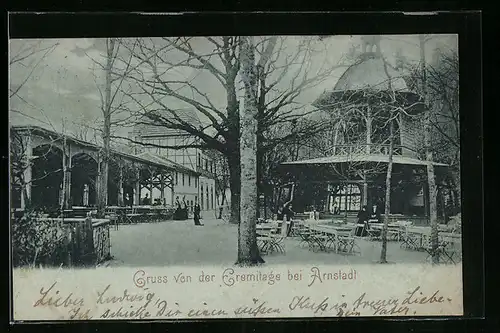 Gruss von der Eremitage bei Arnstadt
Lieber Ludwig
Ich schicke Dir einen süßen Kuß in treuer Liebe
Dein Vater.